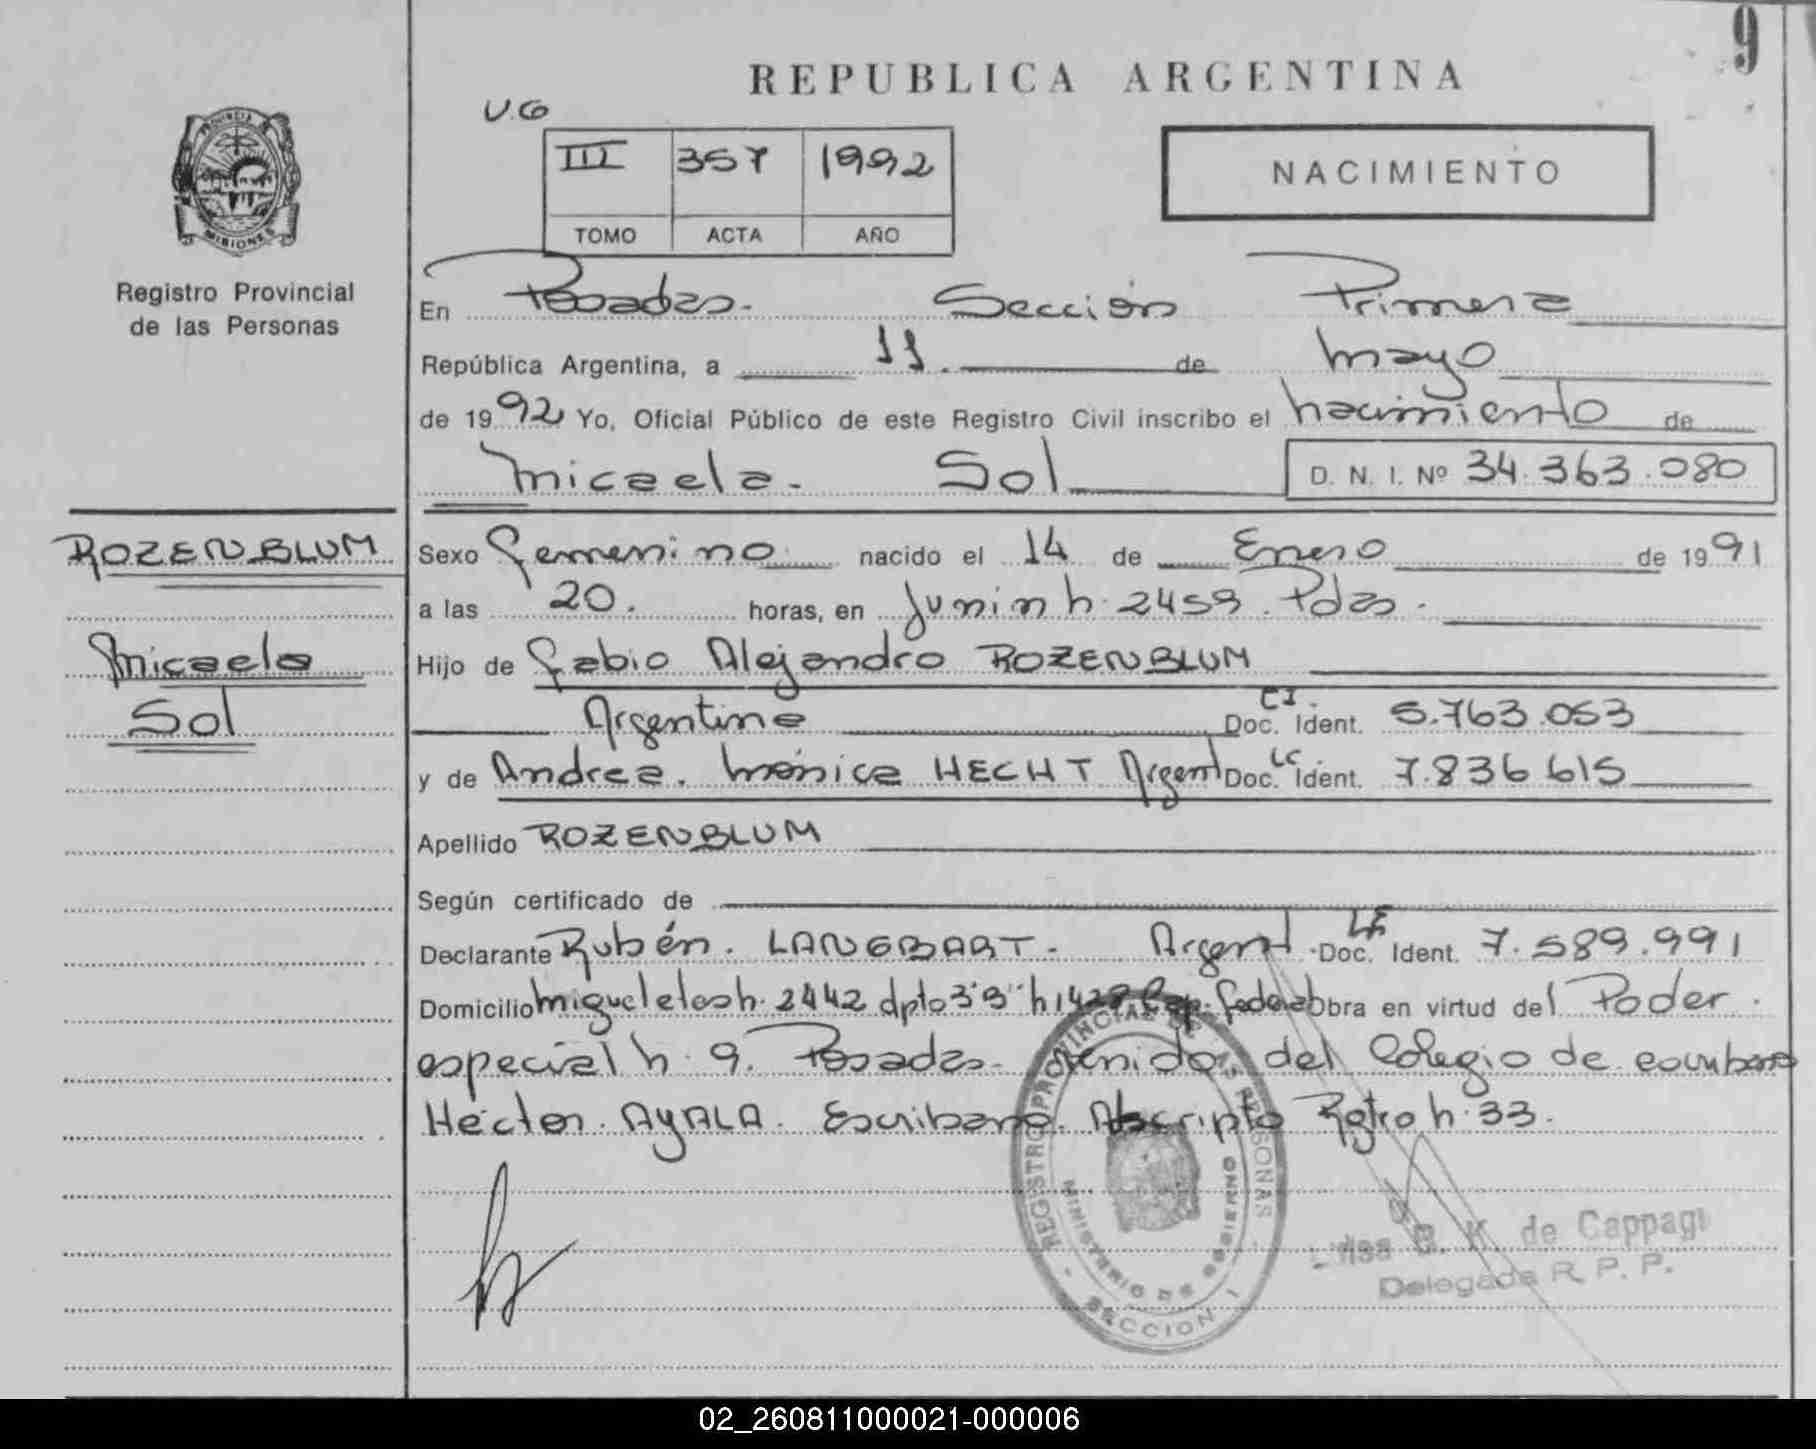 9
REPUBLICA ARGENTINA
U.G
III 357 1992
TOMO ACTA AÑO
NACIMIENTO
PROVINCIA DE
MISIONES
Registro Provincial
de las Personas
En Posadas. Sección Primera
República Argentina, a 11. de mayo
de 1992 Yo, Oficial Público de este Registro Civil inscribo el nacimiento de
Micaela. Sol D. N. I. Nº 34.363.080
ROZENBLUM
Micaela
Sol
Sexo femenino nacido el 14 de Enero de 1991
a las 20. horas, en Junin n. 2459. Pdas.
Hijo de Fabio Alejandro ROZENBLUM
Argentino CI. Doc. Ident. 5.763.053
y de Andrea. Mónica HECHT Argent LC Doc. Ident. 7.836 615
Apellido ROZENBLUM
Según certificado de
Declarante Rubén. LANGBART. Argent. LE Doc. Ident. 7.589.991
Domicilio Migueletes n. 2442 dpto 3"B" Cap. federal Obra en virtud del Poder.
especial n. 9. Posadas. del Colegio de
Héctor. AYALA. Escribano. Adscripto Rgtro n. 33.
REGISTRO PROVINCIAL DE LAS PERSONAS
MINISTERIO DE GOBIERNO
SECCION 1
de Cappagi
Delegada R. P. P.
02_260811000021-000006